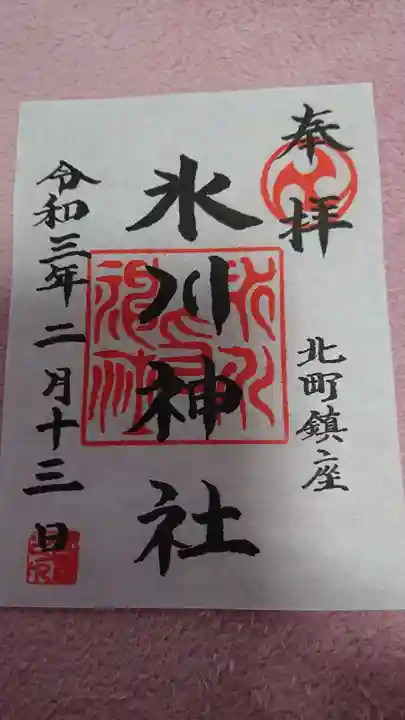 奉拝
北町鎮座
氷川神社
令和三年二月十三日